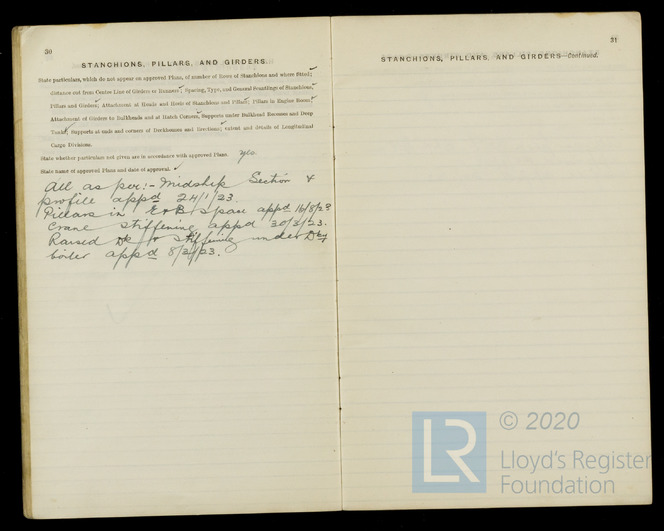 30
STANCHIONS, PILLARS, AND GIRDERS.
State particulars, which do not appear on approved Plans, of number of Rows of Stanchions and where fitted;
distance out from Centre Line of Girders or Runners; Spacing, Type, and General Scantlings of Stanchions,
Pillars and Girders; Attachment at Heads and Heels of Stanchions and Pillars; Pillars in Engine Room;
Attachment of Girders to Bulkheads and at Hatch Corners, Supports under Bulkhead Recesses and Deep
Tanks; Supports at ends and corners of Deckhouses and Erections; extent and details of Longitudinal
Cargo Divisions.
State whether particulars not given are in accordance with approved Plans. Yes
State name of approved Plans and date of approval.
All as per:- Midship Section &
profile appd 24/1/23.
Pillars in E & B space appd 16/8/23
Crane stiffening appd 30/3/23.
Raised Dk & stiffening under Dky
boiler appd 8/3/23.
31
STANCHIONS, PILLARS, AND GIRDERS—Continued.
LR
© 2020
Lloyd's Register
Foundation